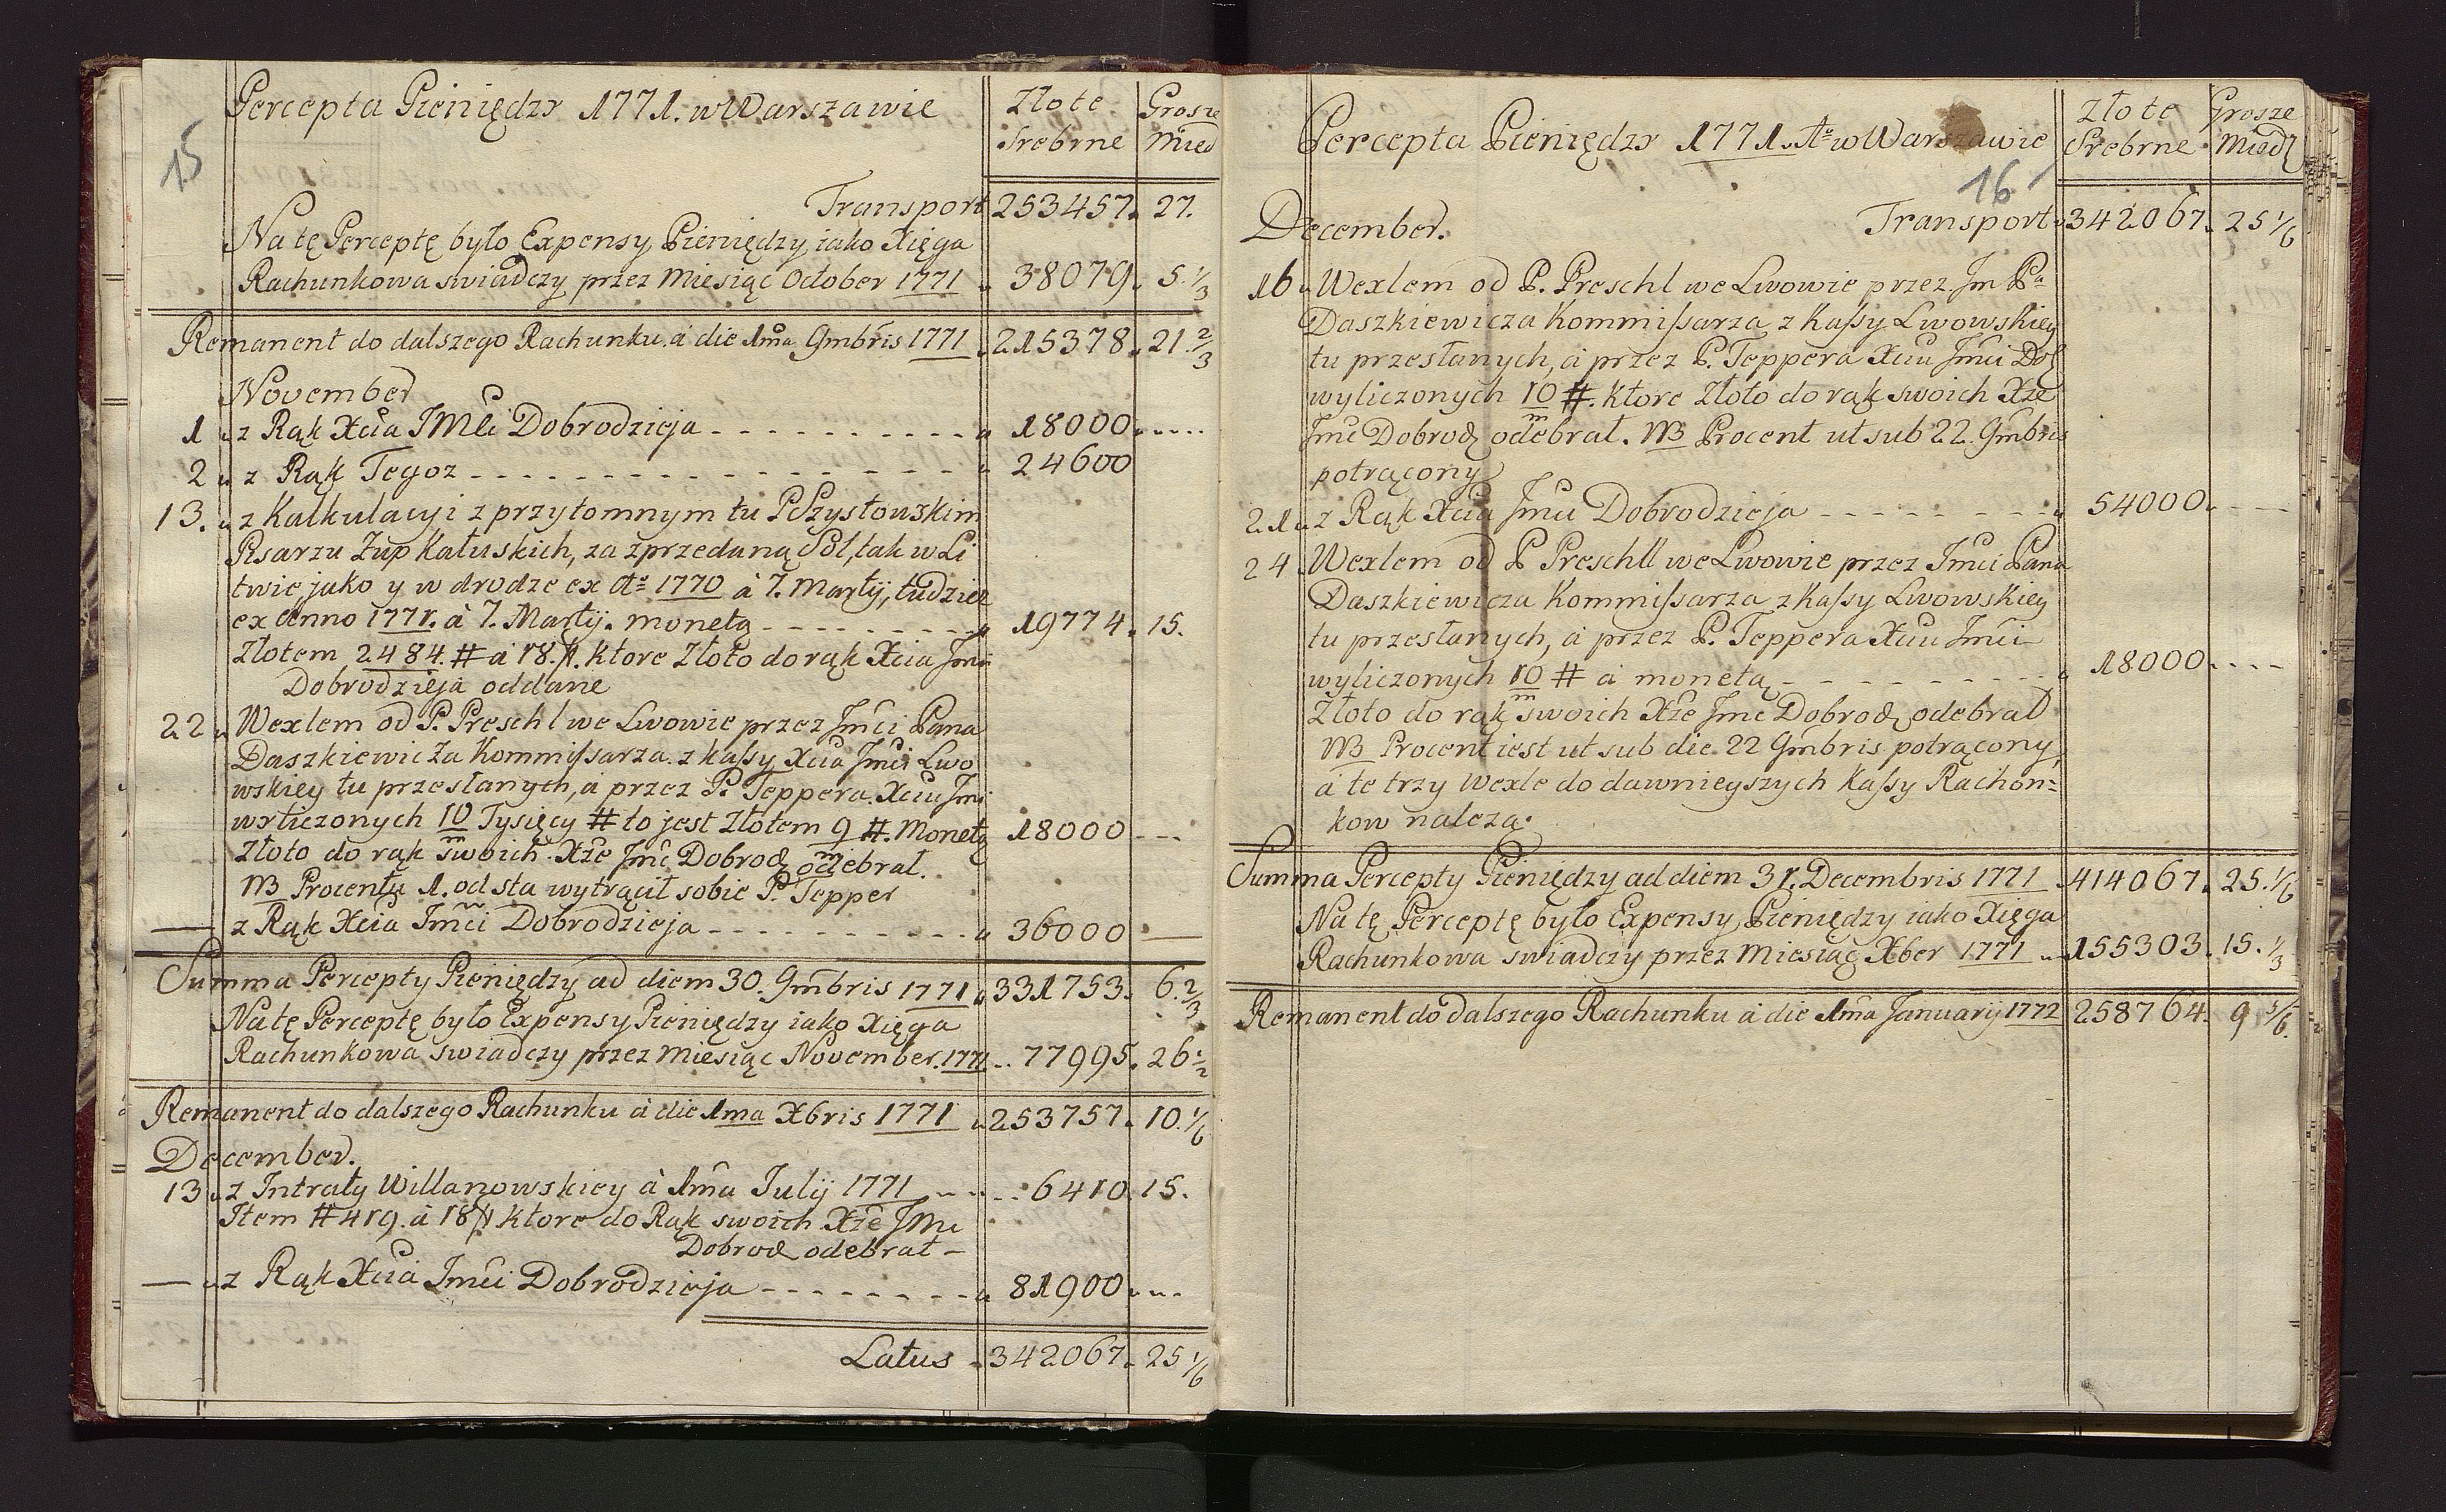 Percepta Pieniędzy 1771. w Warszawie Złote Srebrne Grosze Mied
15
Transport 253457. 27.
Na tę Perceptę było Expensy Pieniędzy iako Xięga
Rachunkowa swiadczy przez Miesiąc October 1771 38079. 5. 1/3
Remanent do dalszego Rachunku á die 1ma 9mbris 1771 215378. 21. 2/3
November
1 z Rąk Xcia JMCi Dobrodzieja 18000
2 z Rąk Tegoz 24600
13. z Kalkulacyi z przytomnym tu P Szystowskim
Pisarzu Zup Kałuskich, za zprzedaną Sol, tak w Li
twie, jako y w drodze ex Ao 1770 à 7. Martij, tudziez
ex Anno 1771. à 7. Martij. monetą 19774. 15.
Złotem 2484. # á 18. fl. ktore Złoto do rąk Xcia Jmci
Dobrodzieja oddane
22 Wexlem od P. Preschl we Lwowie przez Jmci Pana
Daszkiewicza Kommissarza z kassy Xcia Jmci Lwo
wskiey tu przesłanych, á przez P. Teppera Xciu Jmci
wyliczonych 10 m Tysięcy # to jest Złotem 9 m #. Monetą 18000
Złoto do rąk swoich Xże Jmc Dobrodz odebrał.
NB Procentu 1. od sta wytrącił sobie P. Tepper
— z Rąk Xcia Jmci Dobrodzieja 36000 —
Summa Percepty Pieniędzy ad diem 30. 9mbris 1771 331753. 6. 2/3
Na tę Perceptę było Expensy Pieniędzy iako Xięga
Rachunkowa swiadczy przez Miesiąc November. 1771 77995. 26 1/2
Remanent do dalszego Rachunku á die 1ma Xbris 1771 253757. 10. 1/6
December.
13 z Intraty Willanowskiey à 1ma Julij 1771 6410. 15.
Item # 419. á 18 fl ktore do Rąk swoich Xże JMc
Dobrodz odebrał –
— z Rąk Xcia Jmci Dobrodzieja 81900
Latus 342067. 25 1/6
Percepta Pieniędzy 1771. Ao w Warszawie Złote Srebrne Grosze Miedz
16
December. Transport 342067. 25 1/6
16 Wexlem od P. Preschl we Lwowie przez Jm Pa
Daszkiewicza Kommissarza z Kassy Lwowskiey
tu przesłanych, á przez P. Teppera Xciu Jmci Dob
wyliczonych 10 m #. ktore Złoto do rąk swoich Xże
Jmc Dobrodz odebrał. NB Procent ut sub 22. 9mbris
potrącony
21 z Rąk Xcia Jmci Dobrodzieja 54000
24 Wexlem od P Preschll we Lwowie przez Jmci Pana
Daszkiewicza Kommissarza z kassy Lwowskiey
tu przesłanych, á przez P. Teppera Xciu Jmci
wyliczonych 10 m # á monetą 18000
Złoto do rąk swoich Xże Jmc Dobrodz odebrał
NB Procent iest ut sub die 22 9mbris potrącony,
á te trzy Wexle do dawnieyszych Kassy Rachon=
kow nalezą.
Summa Percepty Pieniędzy ad diem 31. Decembris 1771 414067. 25. 1/6
Na tę Perceptę było Expensy Pieniędzy iako Xięga
Rachunkowa swiadczy przez Miesiąc Xber 1771 155303. 15. 1/3
Remanent do dalszego Rachunku á die 1ma Januarij 1772 258764. 9 5/6.